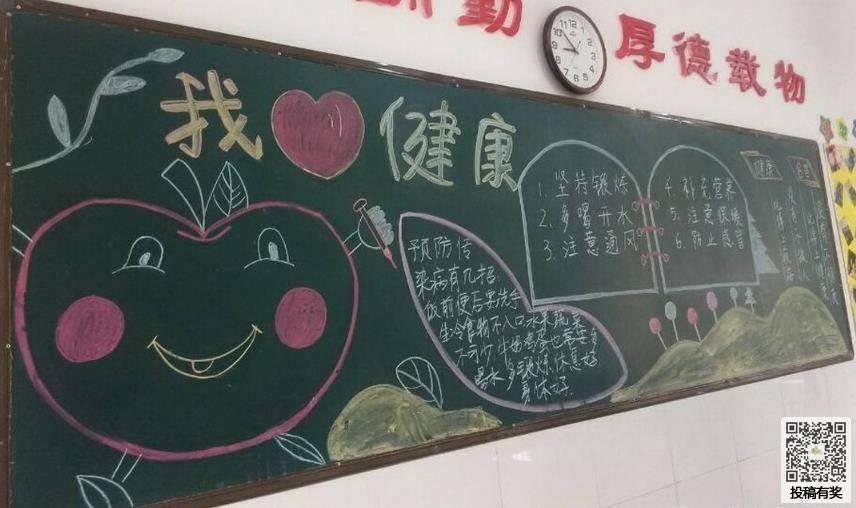 勤
厚德载物
我 健康
预防传
染病有几招
饭前便后要洗手
生冷食物不入口水果蔬菜
不可少
喝水多锻炼.休息好
身体好.
1. 坚持锻炼
2. 多喝开水
3. 注意通风
4. 补充营养
5. 注意保暖
6. 防止感冒
健康
投稿有奖